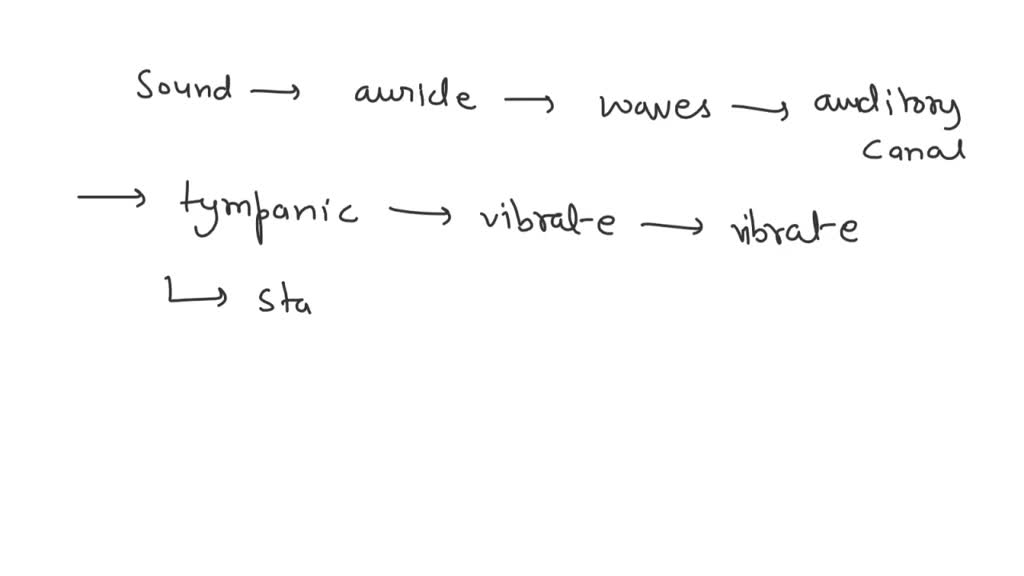 Sound → auricle → waves → auditory
canal
→ tympanic → vibrate → vibrate
↳ sta